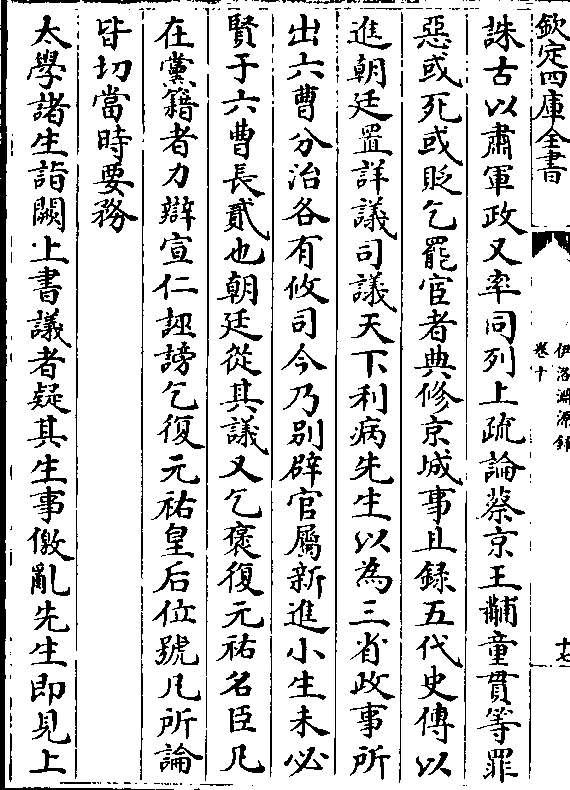 欽定四庫全書
伊洛淵源録
卷十
十七
誅古以肅軍政又率同列上疏論蔡京王黼童貫等罪
惡或死或貶乞罷宦者典修京城事且録五代史傳以
進朝廷置詳議司議天下利病先生以為三省政事所
出六曹分治各有攸司今乃别辟官屬新進小生未必
賢于六曹長貳也朝廷從其議又乞褒復元祐名臣凡
在黨籍者力辯宣仁誣謗乞復元祐皇后位號凡所論
皆切當時要務
太學諸生詣闕上書議者疑其生事儌亂先生即見上